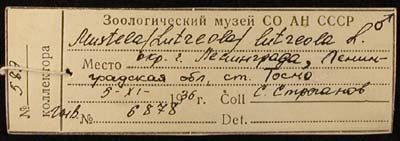 Зоологический музей СО АН СССР
Mustela (Lutreola) lutreola L. ♂
Место окр. г. Ленинграда, Ленин-
градская обл., ст. Тосно
5-XI- 1936г. Coll С. Строганов
№ 6878 Det.
№ 587
коллектора